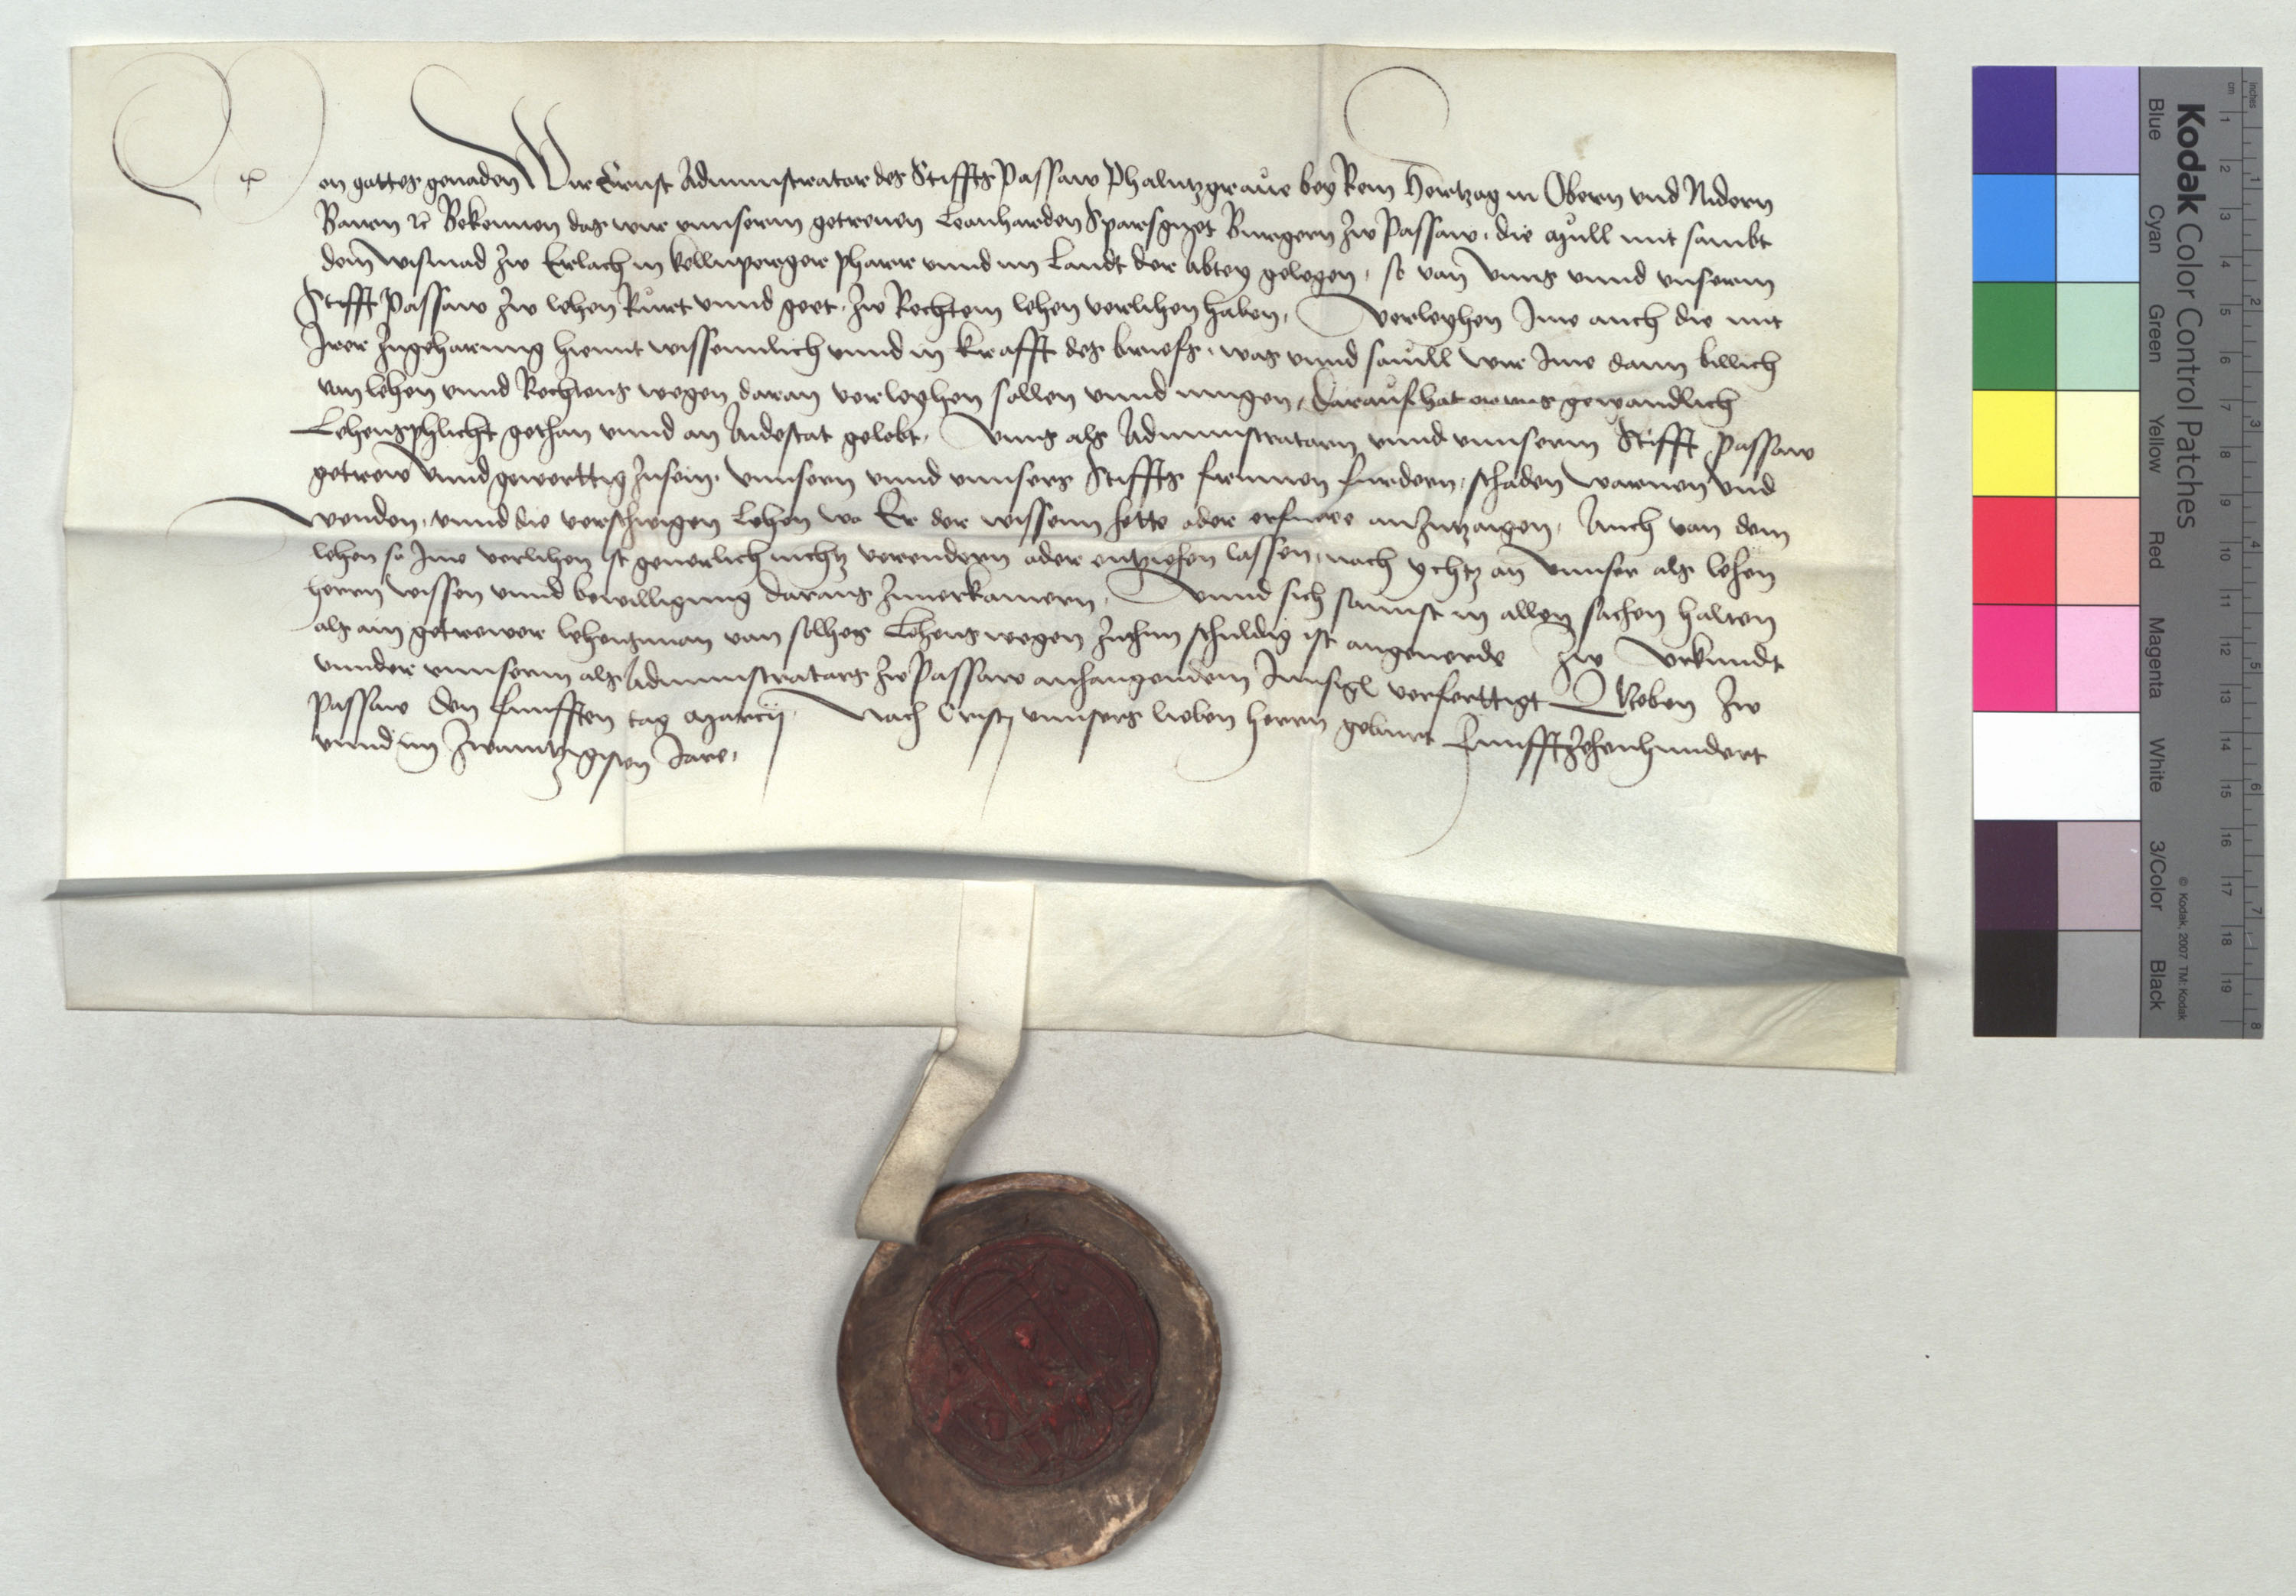 Von gottes genaden Wir Ernst Administrator des Stiffts Passaw Phalntzgraue bey Rein Hertzog in Obern vnd Nidern
Bairn ꝛc Bekennen das wir vnnserm getrewen Leonharden Sparsguet Burgern zw Passaw, die Mull mit sambt
dem wismad zw Erlach in kellnperger pharr vnnd im Landt der Abtey gelegen, so von vnns vnnd vnserm
Stifft Passaw zw lehen Rürt vnnd geet, zw Rechtem lehen verlihen haben, Verleyhen Ime auch die mit
Irer Zugehorung hiemit wissenntlich vnnd in krafft des briefs, was vnnd souil wir Ime dann billich
von lehen vnnd Rechtens wegen daran verleyhen sollen vnnd mugen, Darauf hat er vns gewondlich
Lehensphlicht gethan vnnd an Aidestat gelobt, Vnns als Administratorn vnnd vnnserm Stifft Passaw
getrew vnnd gewerttig zusein, vnnsern vnnd vnnsers Stiffts frumen furdern, schaden warnen vnd
wenden, vnnd die verschwigen Lehen wo Er der wissenn hette oder erfuere anzutzaigen, Auch von dem
lehen so Ime verlihen ist geuerlich nichtz verendern oder entziehen lassen, noch ychtz an vnnser als lehen
herrn wissen vnnd bewilligung daraus zuuerkomern, Vnnd sich sonnst in allen sachen halten
als ain getrewer lehensman von solhes Lehens wegen zuthun schuldig ist ongeuerde Zw Vrkundt
vnnder vnnserm als Administrators zw Passaw anhangendem Innsigl verferttigt Geben zw
Passaw den funfften tag Marcij, Nach Cristj vnnsers lieben herrn geburt Funfftzehenhundert
vnnd im zwaintzigisten Jare,
Kodak Color Control Patches
© Kodak, 2007 TM: Kodak
Blue Cyan Green Yellow Red Magenta White 3/Color Black
inches 1 2 3 4 5 6 7 8
cm 1 2 3 4 5 6 7 8 9 10 11 12 13 14 15 16 17 18 19